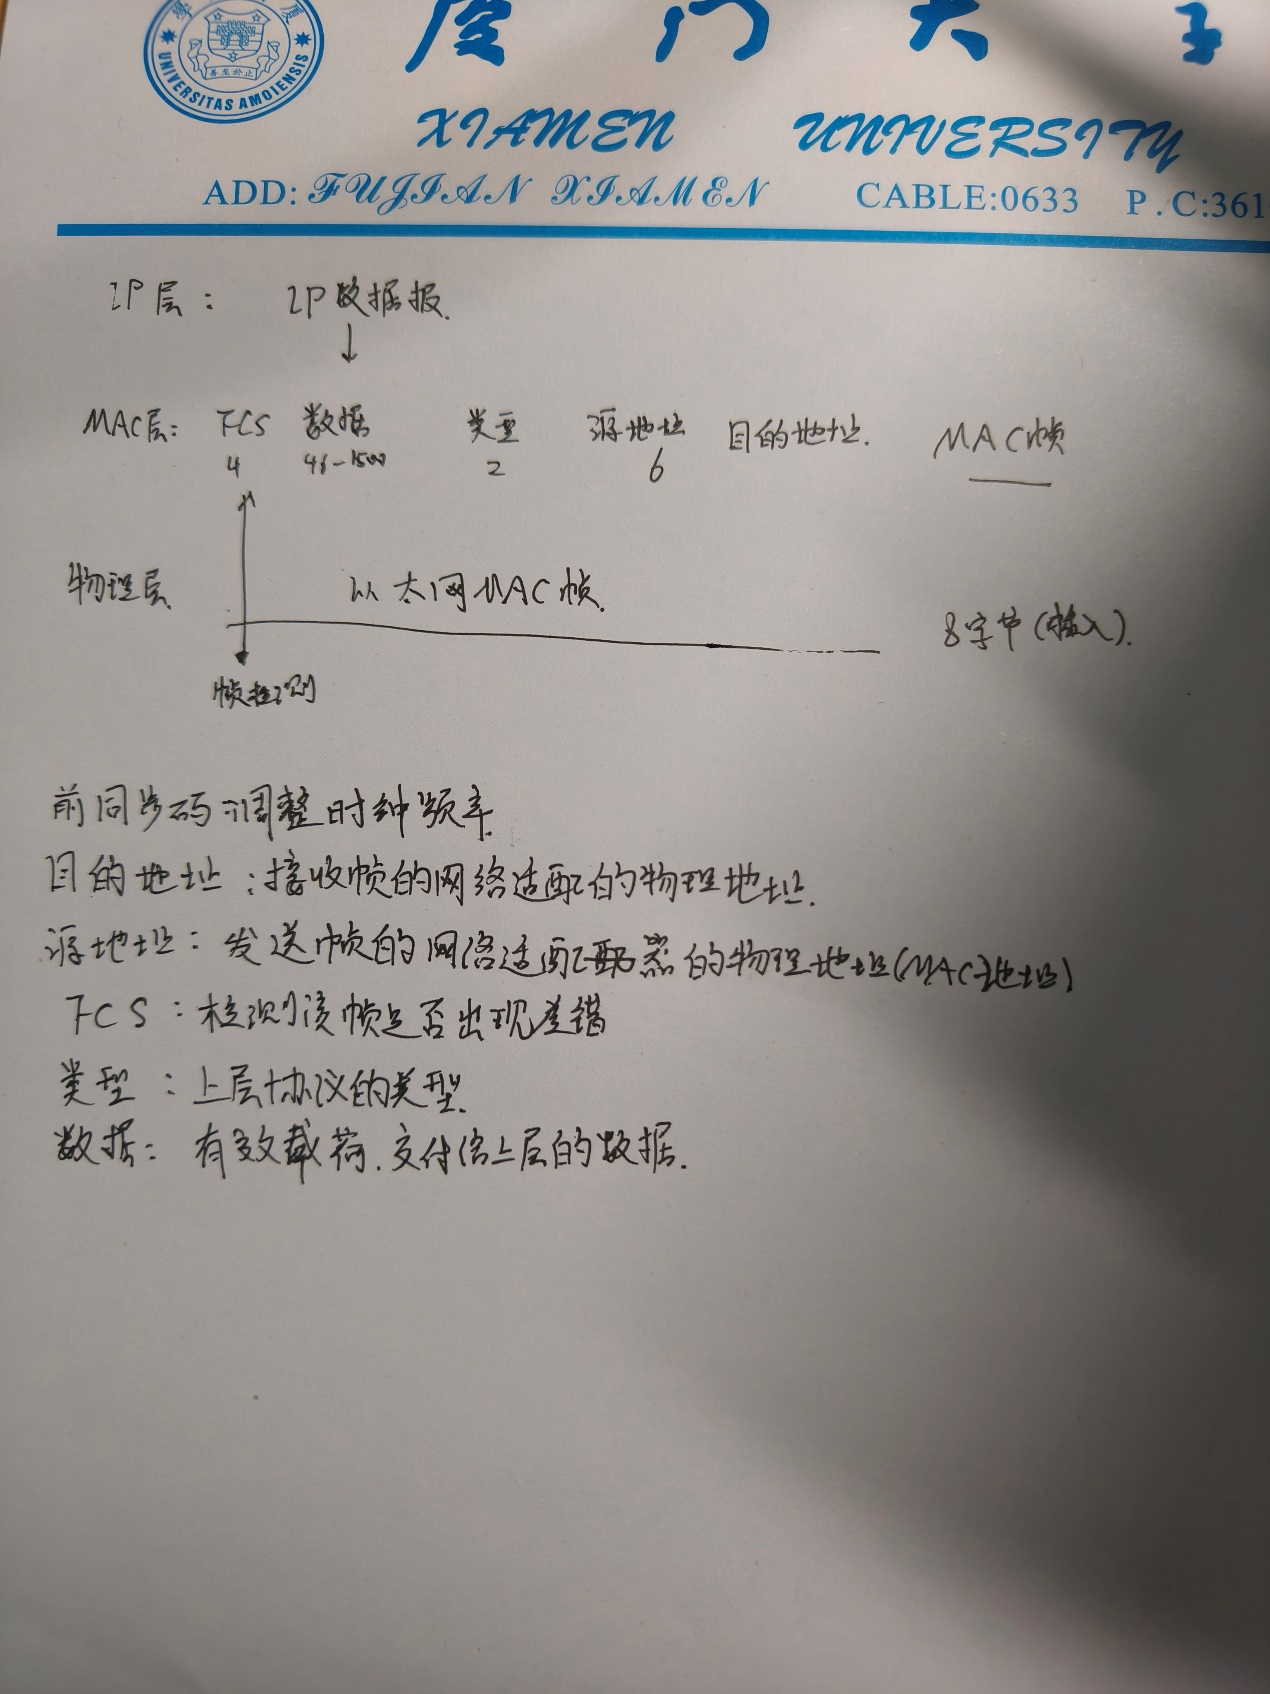 厦门大学
UNIVERSITAS AMOIENSIS
XIAMEN UNIVERSITY
ADD: FUJIAN XIAMEN CABLE:0633 P.C:361
IP层: IP数据报.
↓
MAC层: FCS 数据 类型 源地址 目的地址. MAC帧
4 46-1500 2 6
物理层 以太网MAC帧. 8字节(插入).
帧检测
前同步码:调整时钟频率
目的地址:接收帧的网络适配的物理地址.
源地址:发送帧的网络适配器的物理地址(MAC地址)
FCS:检测该帧是否出现差错
类型:上层协议的类型.
数据:有效载荷.交付给上层的数据.